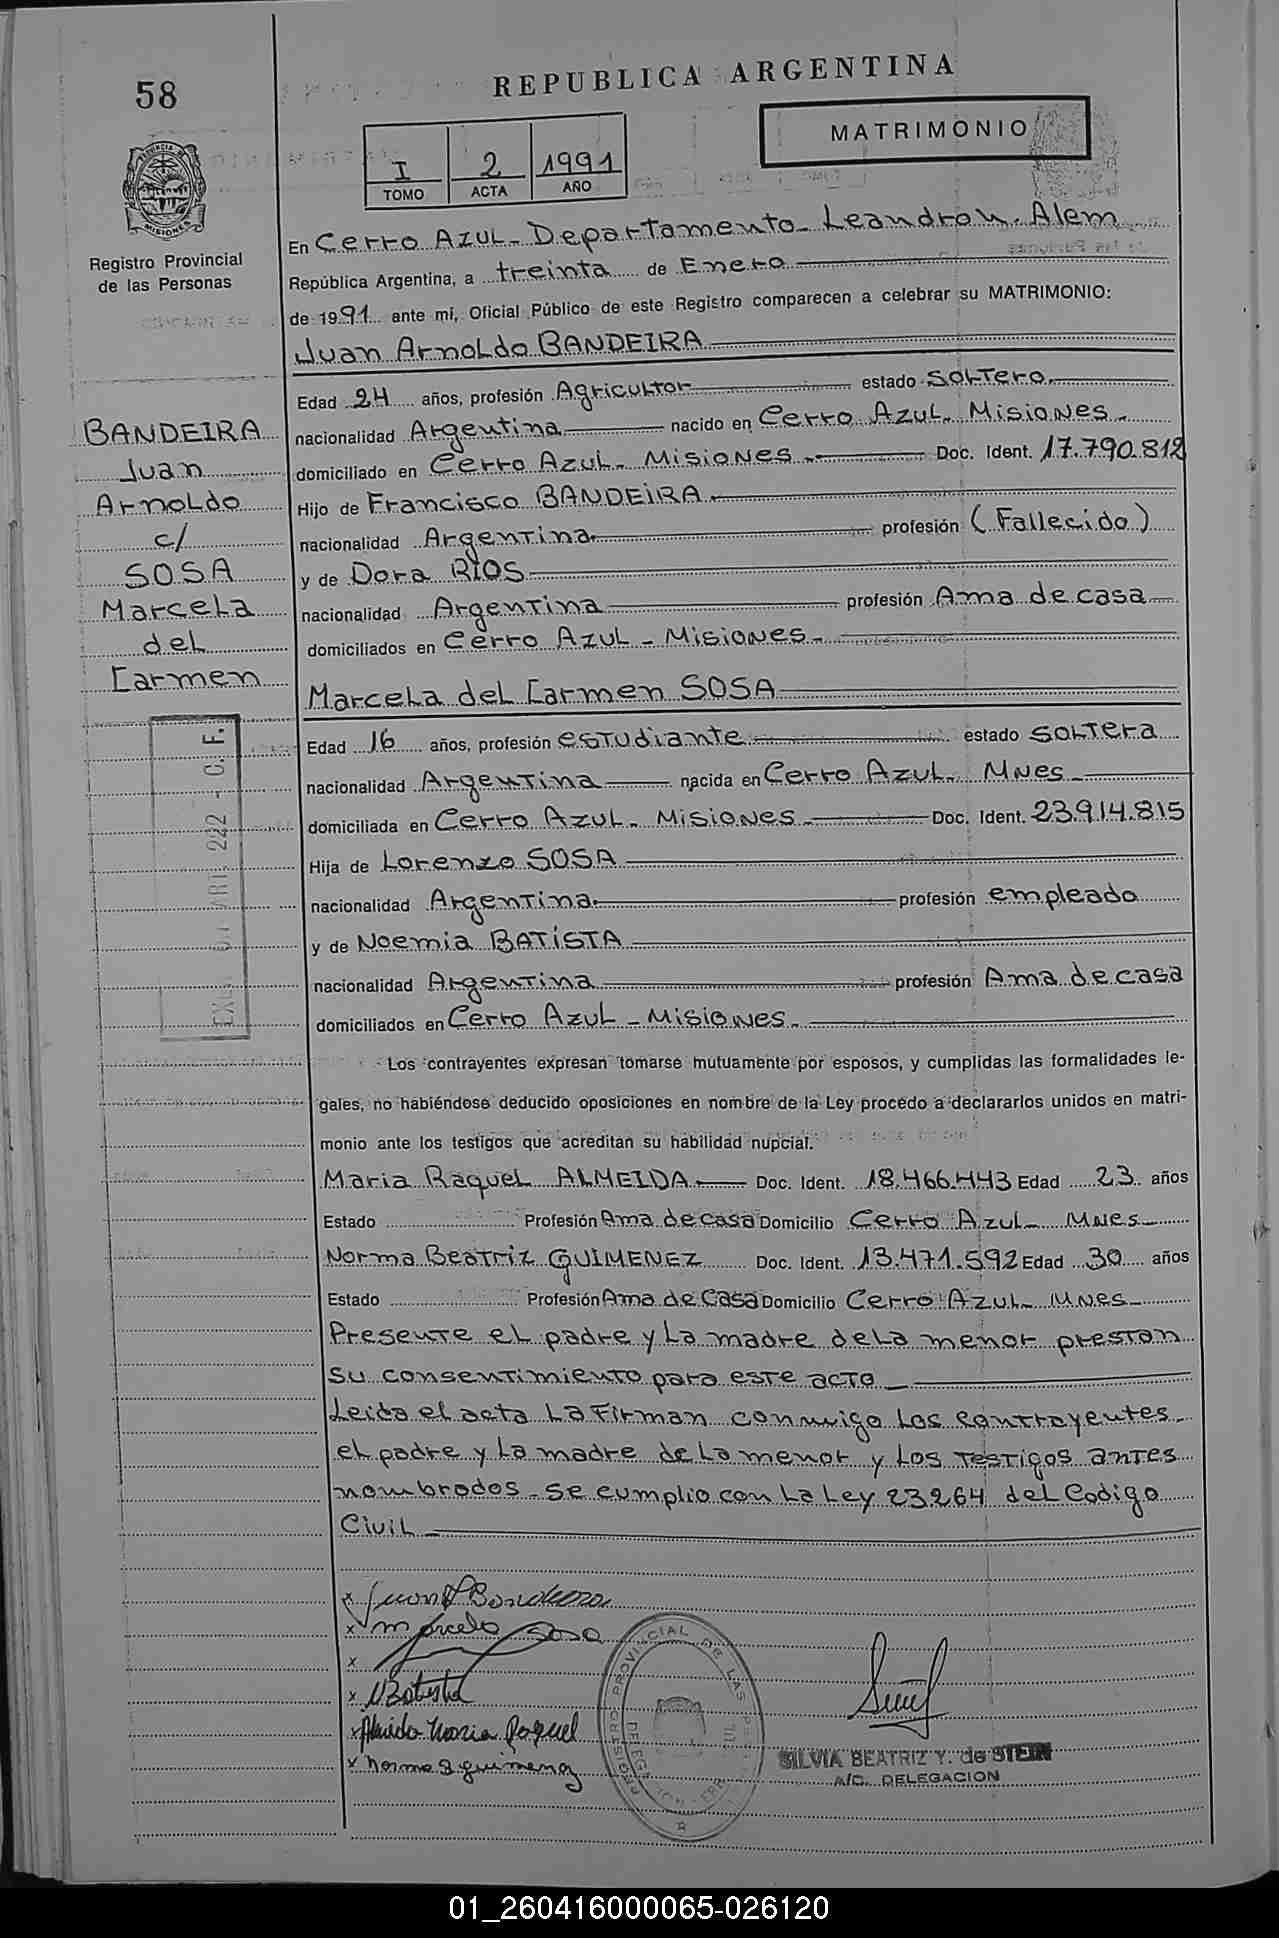 58
REPUBLICA ARGENTINA
MATRIMONIO
I 2 1991
TOMO ACTA AÑO
PROVINCIA DE
MISIONES
Registro Provincial
de las Personas
En Cerro AZUL - Departamento - Leandro N. Alem
República Argentina, a treinta de Enero
de 1991 ante mi, Oficial Público de este Registro comparecen a celebrar su MATRIMONIO:
Juan Arnoldo BANDEIRA
Edad 24 años, profesión Agricultor estado Soltero.
nacionalidad Argentina nacido en Cerro Azul - Misiones -
domiciliado en Cerro Azul - Misiones - Doc. Ident. 17.790.812
Hijo de Francisco BANDEIRA.
nacionalidad Argentina. profesión (Fallecido)
y de Dora RIOS
nacionalidad Argentina profesión Ama de casa
domiciliados en Cerro Azul - Misiones -
BANDEIRA
Juan
Arnoldo
c/
SOSA
Marcela
del
Carmen
ART. 222 - C. F.
Marcela del Carmen SOSA
Edad 16 años, profesión estudiante estado soltera
nacionalidad Argentina nacida en Cerro Azul - Mnes -
domiciliada en Cerro Azul - Misiones - Doc. Ident. 23.914.815
Hija de Lorenzo SOSA
nacionalidad Argentina. profesión empleado
y de Noemia BATISTA
nacionalidad Argentina profesión Ama de casa
domiciliados en Cerro Azul - Misiones -
Los contrayentes expresan tomarse mutuamente por esposos, y cumplidas las formalidades le-
gales, no habiéndose deducido oposiciones en nombre de la Ley procedo a declararlos unidos en matri-
monio ante los testigos que acreditan su habilidad nupcial.
Maria Raquel ALMEIDA Doc. Ident. 18.466.443 Edad 23 años
Estado Profesión Ama de casa Domicilio Cerro Azul - Mnes -
Norma Beatriz GUIMENEZ Doc. Ident. 13.471.592 Edad 30 años
Estado Profesión Ama de Casa Domicilio Cerro Azul - Mnes -
Presente el padre y la madre de la menor prestan
su consentimiento para este acto -
Leida el acta la firman conmigo los contrayentes -
el padre y la madre de la menor y los testigos antes
nombrados - se cumplio con la Ley 23264 del Codigo
Civil -
x Juan A Bandeira
x Marcela Sosa
x
x N Batista
x Almeida Maria Raquel
x Norma B Guimenez
REGISTRO PROVINCIAL DE LAS
SILVIA BEATRIZ Y. de STEIN
A/C. DELEGACION
01_260416000065-026120